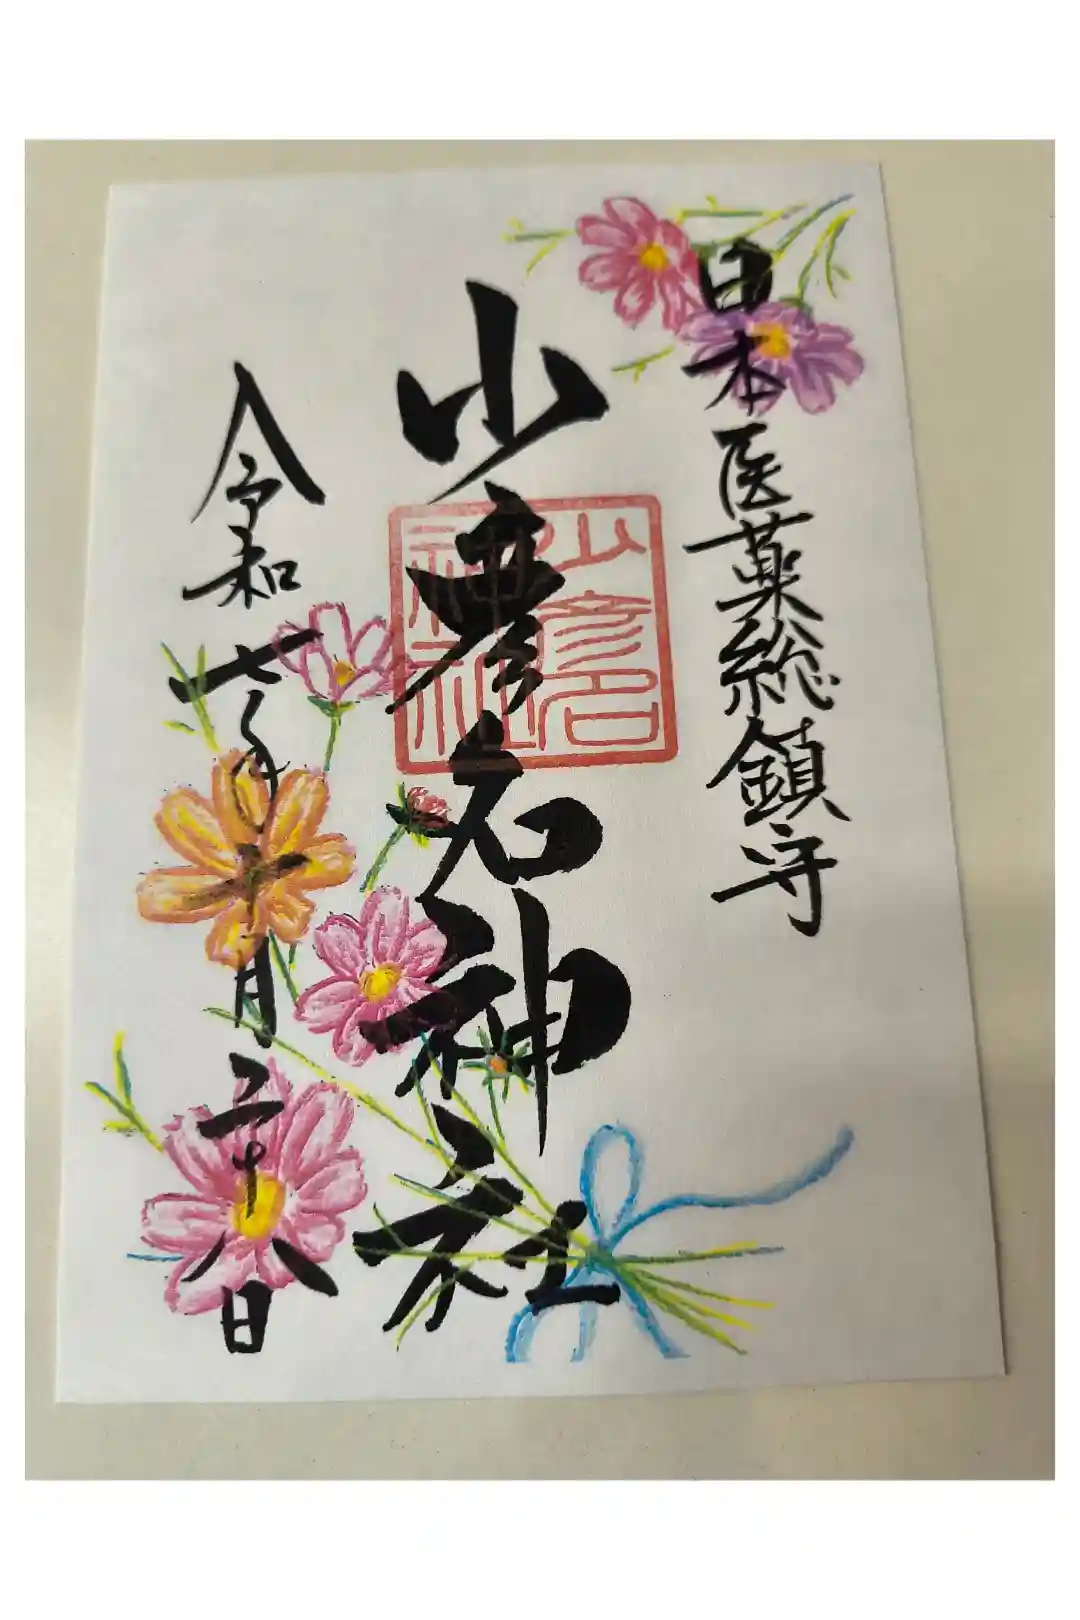 日本医薬総鎮守
少彦名神社
少彦名神社
令和七年十月二十八日